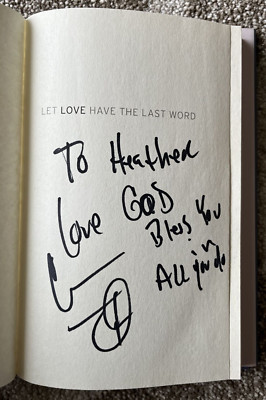 LET LOVE HAVE THE LAST WORD
To Heather
Love God
Bless You
in
All you do